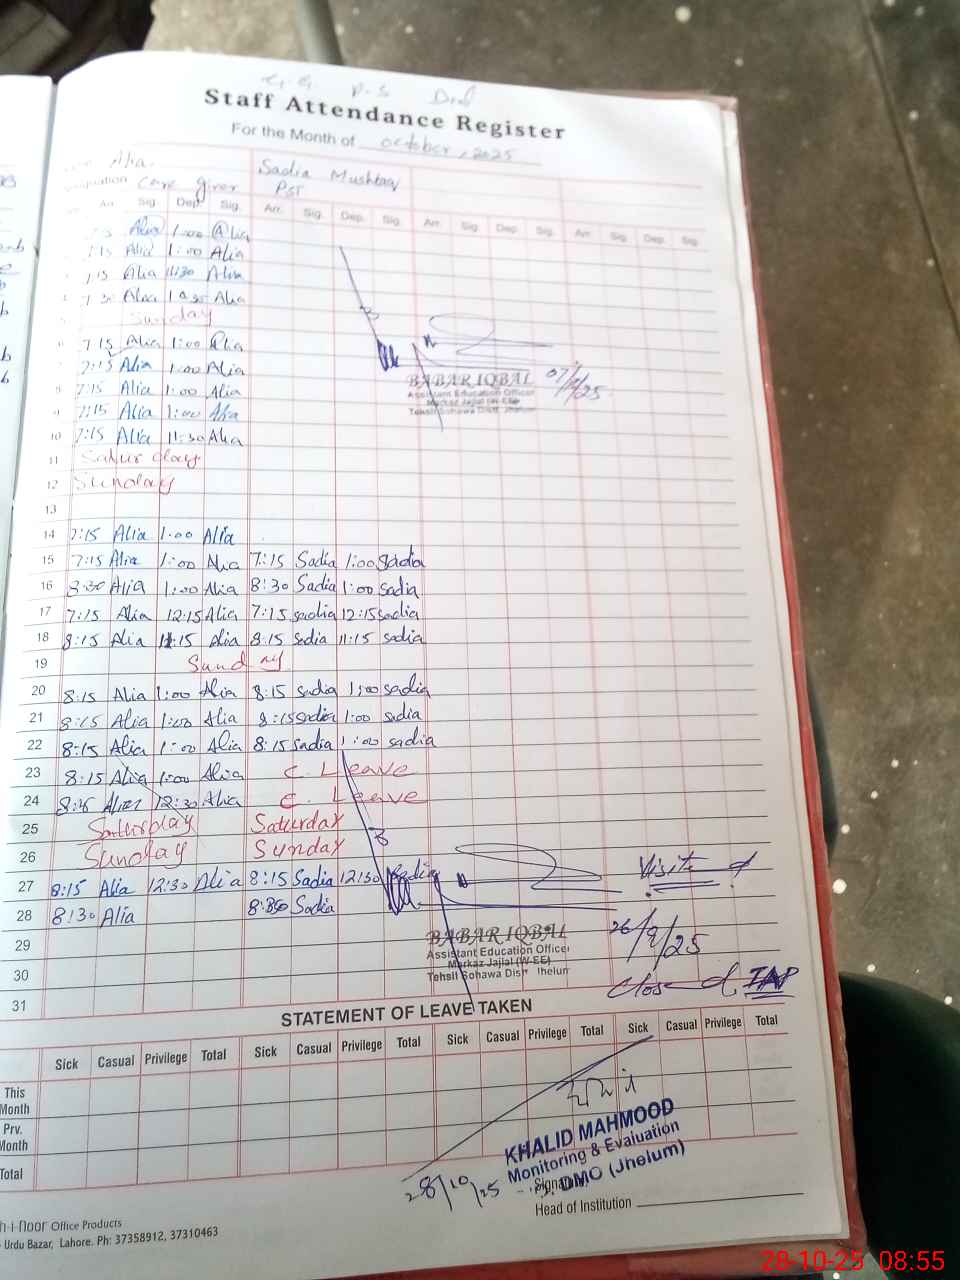 G. G. P.S
Staff Attendance Register
For the Month of October, 2025
Alia. Sadia Mushtaq
Care giver PST
Arr. Sig. Dep. Sig. Arr. Sig. Dep. Sig. Arr. Sig. Dep. Sig. Arr. Sig. Dep. Sig.
Alia 1:00 Alia
7:15 Alia 1:00 Alia
7:15 Alia 11:30 Alia
7:30 Alia 10:30 Alia
Sunday
6 7:15 Alia 1:00 Alia
7:15 Alia 1:00 Alia
BABAR IQBAL 07/ /25
8 7:15 Alia 1:00 Alia
Assistant Education Officer
Markaz Jajial (W-EE)
9 7:15 Alia 1:00 Alia
Tehsil Sohawa Dist. Jhelum
10 7:15 Alia 11:30 Alia
11 Saturday
12 Sunday
13
14 7:15 Alia 1:00 Alia
15 7:15 Alia 1:00 Alia 7:15 Sadia 1:00 Sadia
16 8:30 Alia 1:00 Alia 8:30 Sadia 1:00 sadia
17 7:15 Alia 12:15 Alia 7:15 sadia 12:15 sadia
18 8:15 Alia 11:15 Alia 8:15 sadia 11:15 sadia
19 Sunday
20 8:15 Alia 1:00 Alia 8:15 sadia 1:00 sadia
21 8:15 Alia 1:00 Alia 8:15 sadia 1:00 sadia
22 8:15 Alia 1:00 Alia 8:15 sadia 1:00 sadia
23 8:15 Alia 1:00 Alia C. Leave
24 8:15 Alia 12:30 Alia C. Leave
25 Saturday Saturday
26 Sunday Sunday
27 8:15 Alia 12:30 Alia 8:15 Sadia 12:30 Sadia Visited
28 8:30 Alia 8:30 Sadia
29 BABAR IQBAL 26/9/25
Assistant Education Officer
30 Markaz Jajial (W-EE)
Tehsil Sohawa Dist Jhelum
31 Closed
STATEMENT OF LEAVE TAKEN
Sick Casual Privilege Total Sick Casual Privilege Total Sick Casual Privilege Total Sick Casual Privilege Total
This Month
Prv. Month
Total
KHALID MAHMOOD
Monitoring & Evaluation
DMO (Jhelum)
28/10/25
Head of Institution
h-i-noor Office Products
Urdu Bazar, Lahore. Ph: 37358912, 37310463
28-10-25 08:55